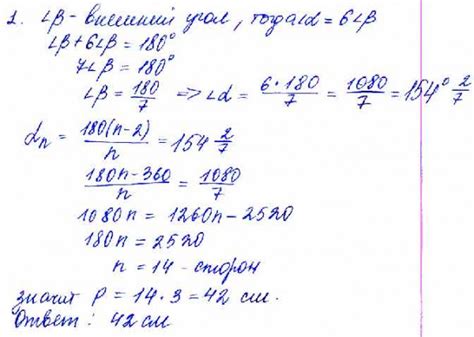 1. ∠β - внешний угол, тогда ∠α = 6∠β
∠β + 6∠β = 180°
7∠β = 180°
∠β = 180/7 => ∠α = 6·180/7 = 1080/7 = 154° 2/7
αₙ = 180(n-2)/n = 154 2/7
180n - 360/n = 1080/7
1080n = 1260n - 2520
180n = 2520
n = 14 - сторон
значит P = 14·3 = 42 см.
Ответ: 42 см